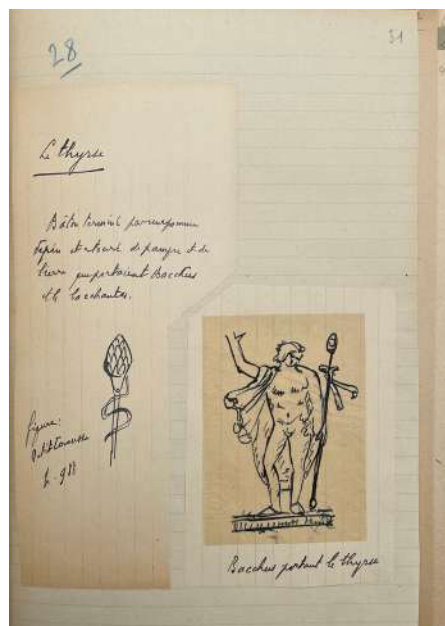 28
51
Le thyrse
Bâton terminé par une pomme
de pin et entouré de pampre et de
lierre que portaient Bacchus
et les bacchantes.
figure:
Petit Larousse
p. 988
Bacchus portant le thyrse